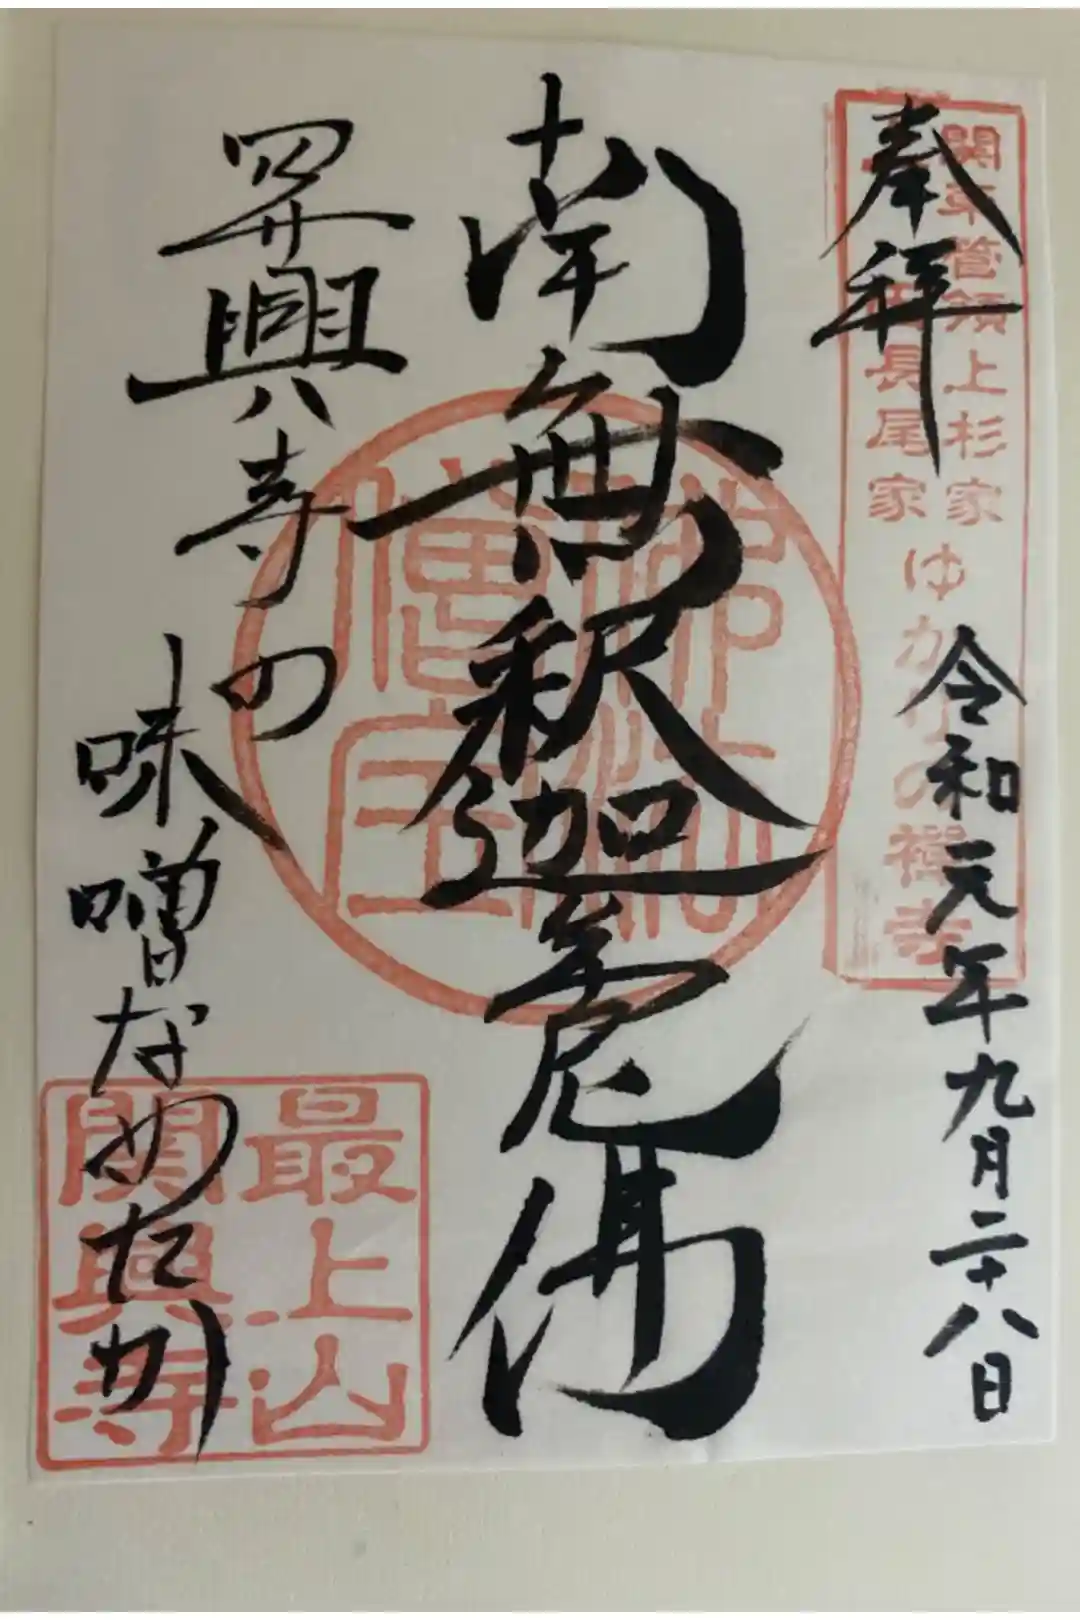 関東管領上杉家
上田長尾家
ゆかりの禅寺
奉拝
令和元年九月二十八日
南無釈迦牟尼佛
佛法
僧宝
関興寺の
味噌なめたか
最上山
關興寺